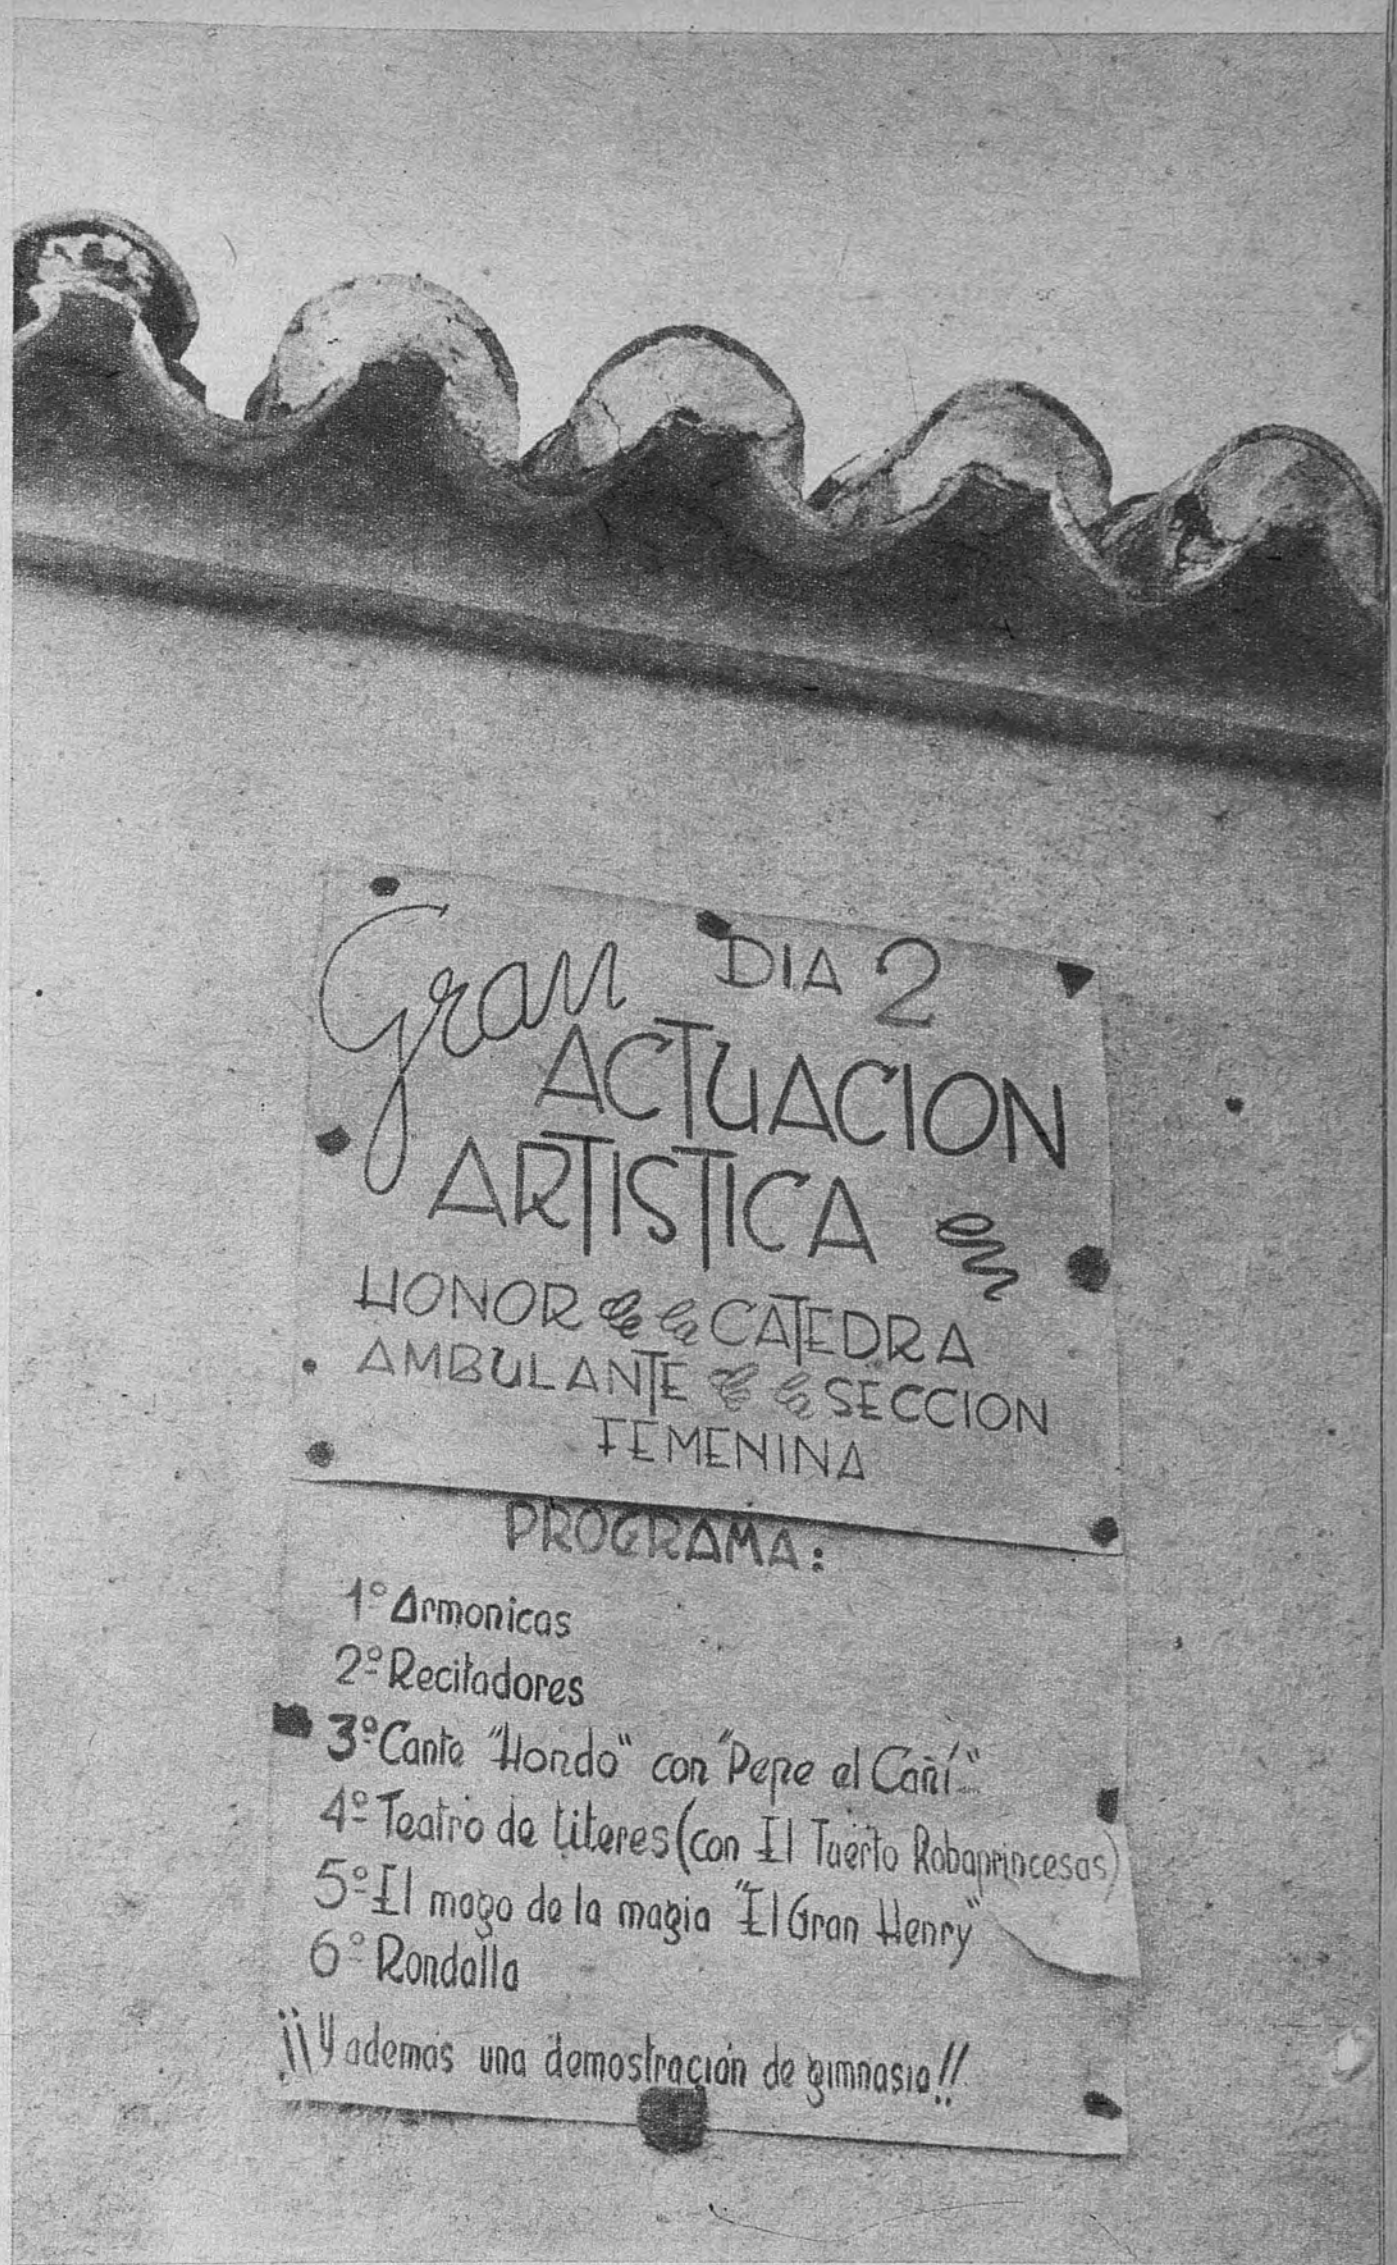 Gran DIA 2
ACTUACION
ARTISTICA en
HONOR de la CATEDRA
AMBULANTE de la SECCION
FEMENINA
PROGRAMA:
1º Armonicas
2º Recitadores
3º Cante "Hondo" con "Pepe el Cañí"
4º Teatro de títeres (con El Tuerto Robaprincesas)
5º El mago de la magia "El Gran Henry"
6º Rondalla
¡¡Y ademas una demostración de gimnasia!!